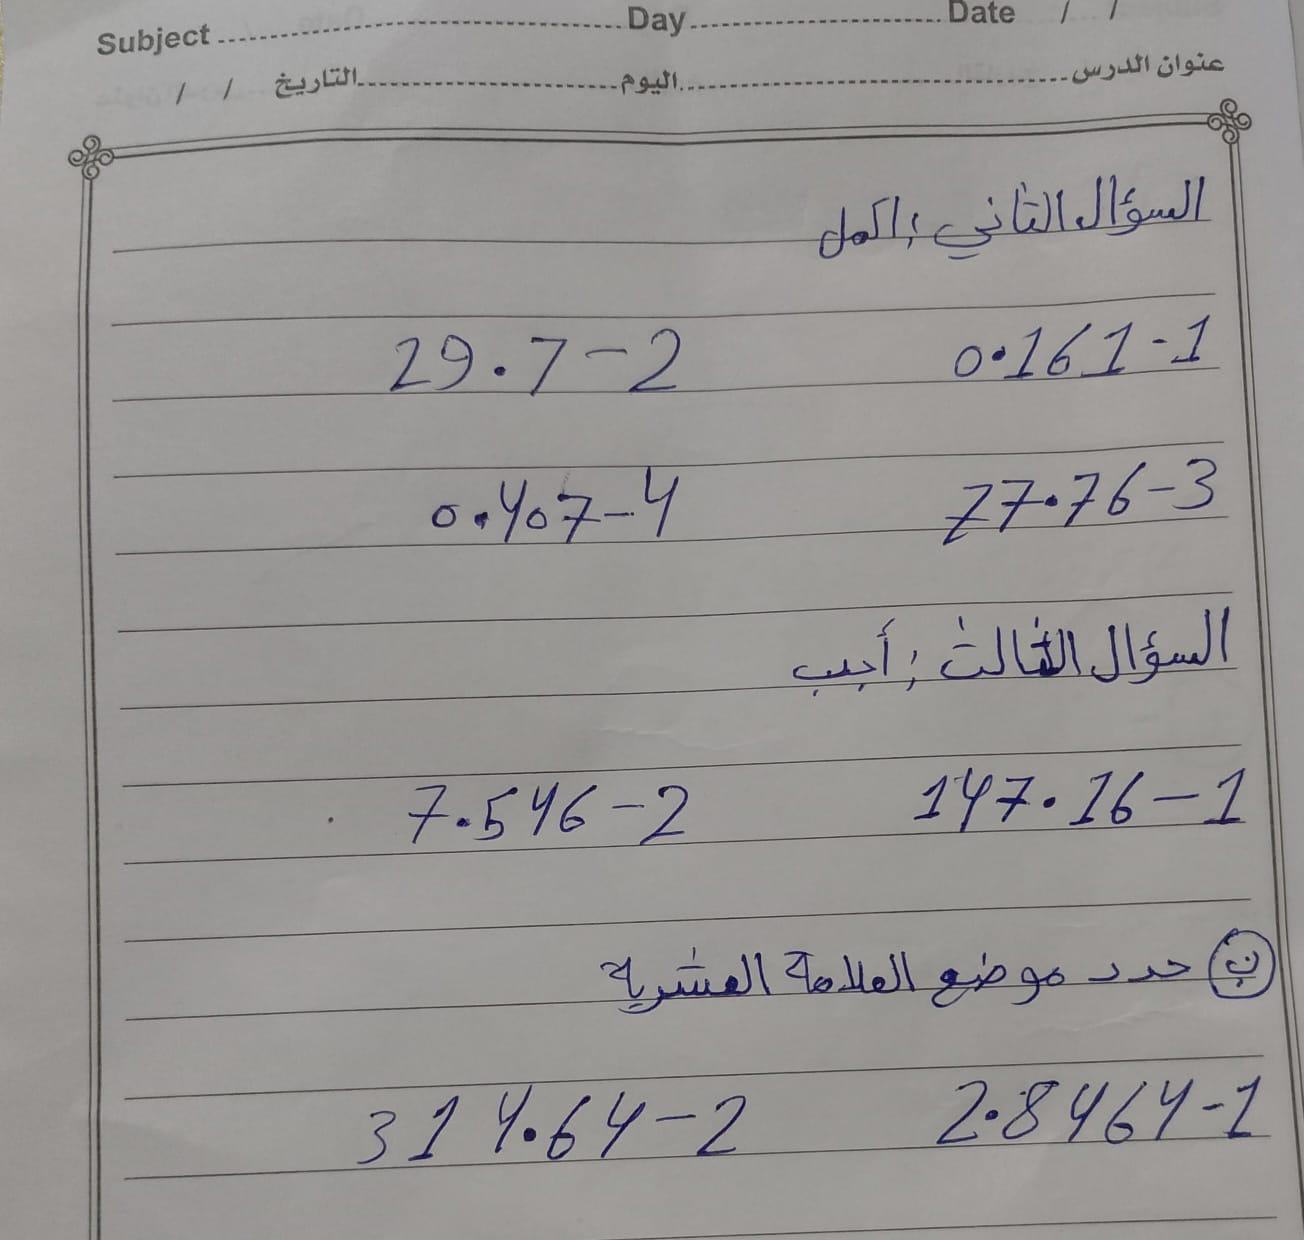 Subject ........ Day ........ Date / /
عنوان الدرس ........ اليوم ........ التاريخ / /
السؤال الثاني ; اكمل
0.161-1 29.7-2
77.76-3 0.407-4
السؤال الثالث ; أجيب
147.16-1 7.546-2
ب حدد موضع العلامة العشرية
2.8464-1 314.64-2